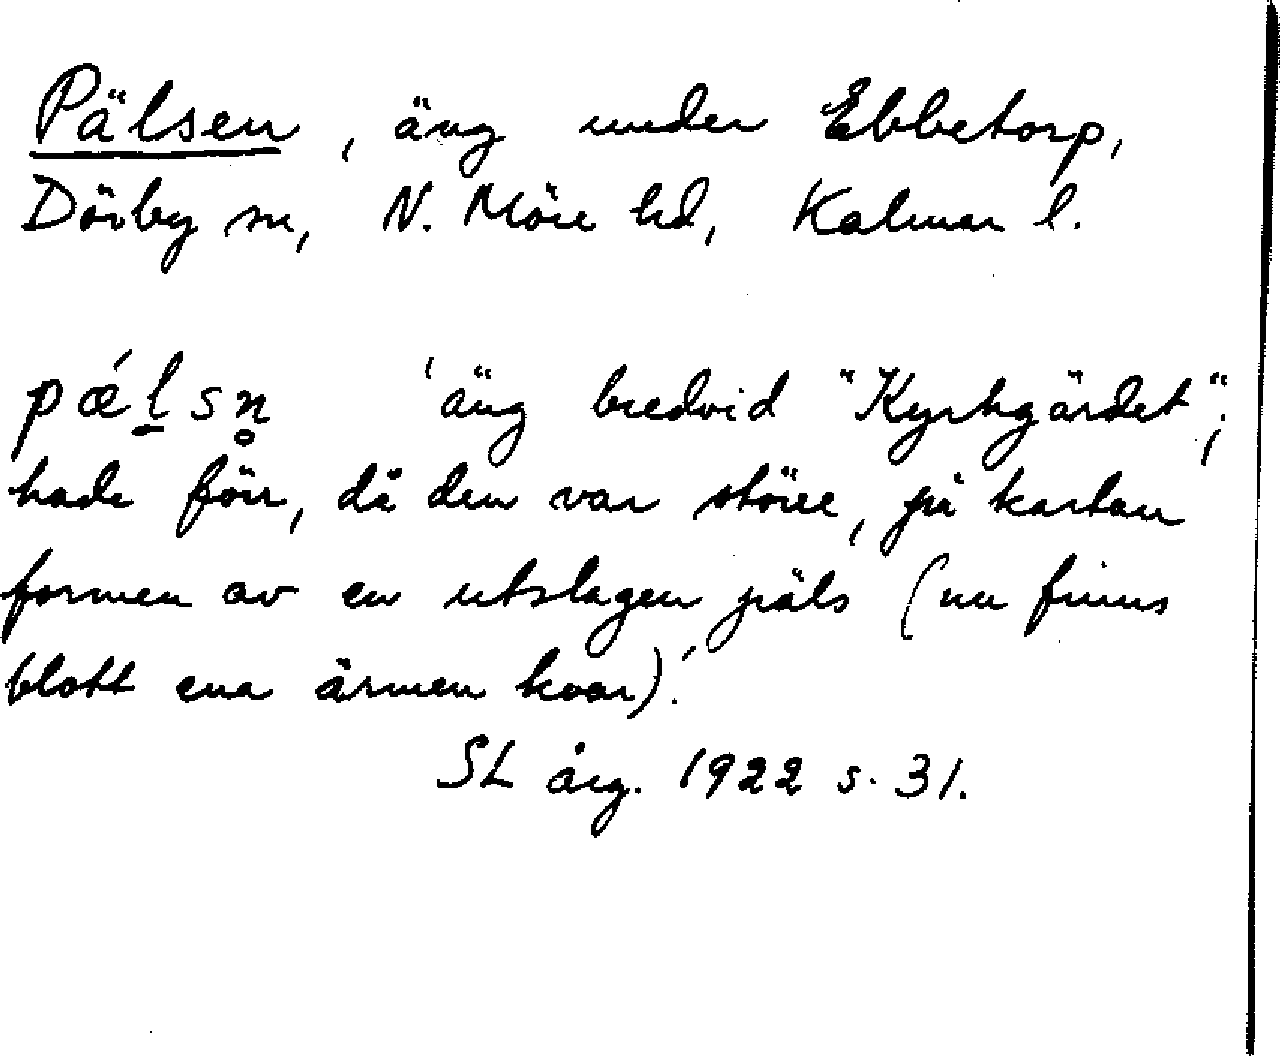 Pälsen, äng under Ebbetorp,
Dörby sn, N. Möre hd, Kalmar l.
pǽl̠sn̥ 'äng bredvid "Kyrkgärdet";
hade förr, då den var större, på kartan
formen av en utslagen päls (nu finns
blott ena ärmen kvar).'
SL årg. 1922 s. 31.